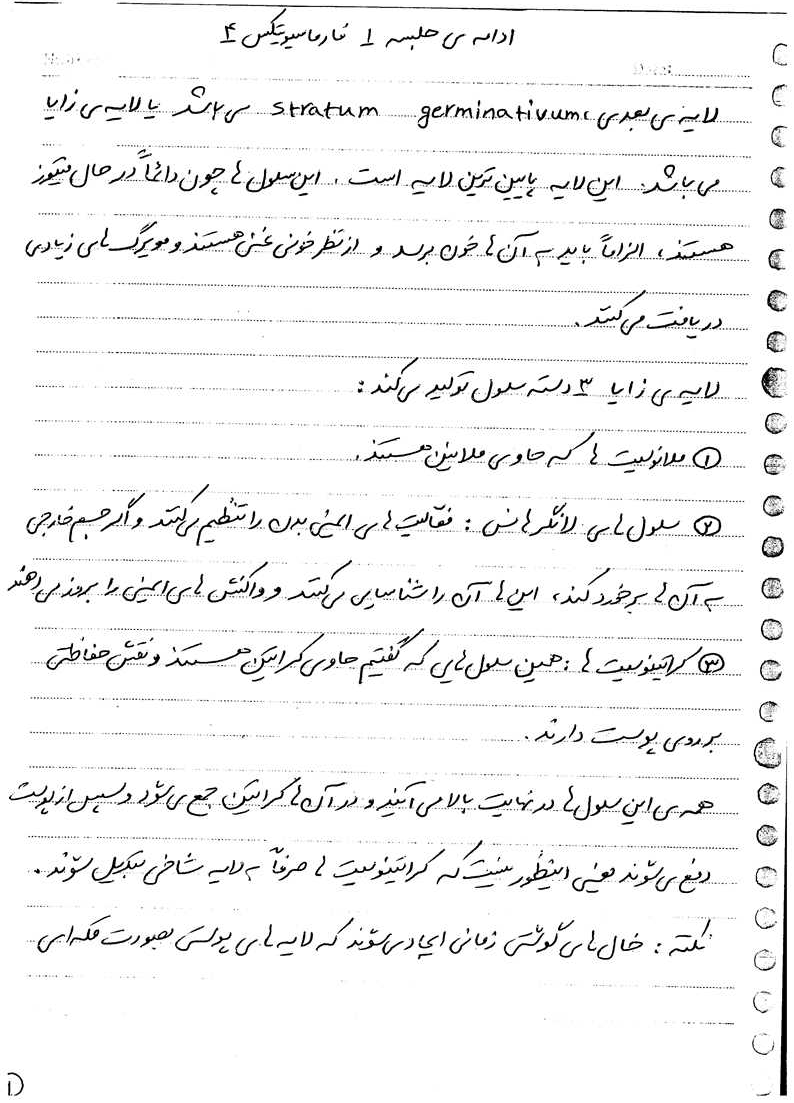 ادامه ی جلسه ۱ فارماسیوتیکس ۴
لایه ی بعدی، stratum germinativum می باشد یا لایه ی زایا
می باشد. این لایه پایین ترین لایه است. این سلول ها چون دائماً در حال میتوز
هستند، الزاماً باید به آن ها خون برسد و از نظر خونی غنی هستند و مویرگ های زیادی
دریافت می کنند.
لایه ی زایا ۳ دسته سلول تولید می کند:
① ملانوسیت ها که حاوی ملانین هستند.
② سلول های لانگرهانس: فعالیت های ایمنی بدن را تنظیم می کنند و اگر جسم خارجی
به آن ها برخورد کند، این ها آن را شناسایی می کنند و واکنش های ایمنی را بروز می دهند
③ کراتینوسیت ها: همین سلول هایی که گفتیم حاوی کراتین هستند و نقش حفاظتی
بر روی پوست دارند.
همه ی این سلول ها در نهایت بالا می آیند و در آن ها کراتین جمع می شود و سپس از پوست
دفع می شوند یعنی اینطور نیست که کراتینوسیت ها صرفاً به لایه شاخی تبدیل شوند.
نکته: خال های گوشتی زمانی ایجاد می شوند که لایه های پوستی بصورت تکه ای
①